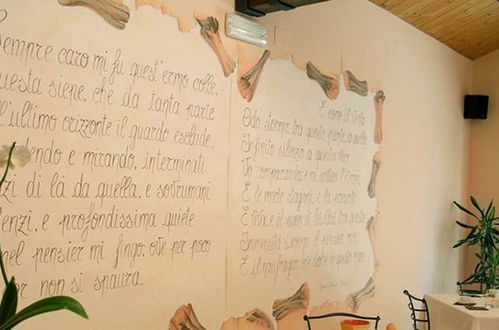 Sempre caro mi fu quest'ermo colle,
questa siepe, che da tanta parte
ll'ultimo orizzonte il guardo esclude.
endo e mirando, interminati
zi di là da quella, e sovrumani
enzi, e profondissima quiete
nel pensier mi fingo; ove per poco
or non si spaura.
E come il vento
Odo stormir tra queste piante, io quello
Infinito silenzio a questa voce
Vo comparando: e mi sovvien l'eterno,
E le morte stagioni, e la presente
E viva, e il suon di lei. Così tra questa
Immensità s'annega il pensier mio:
E il naufragar m'è dolce in questo mare.